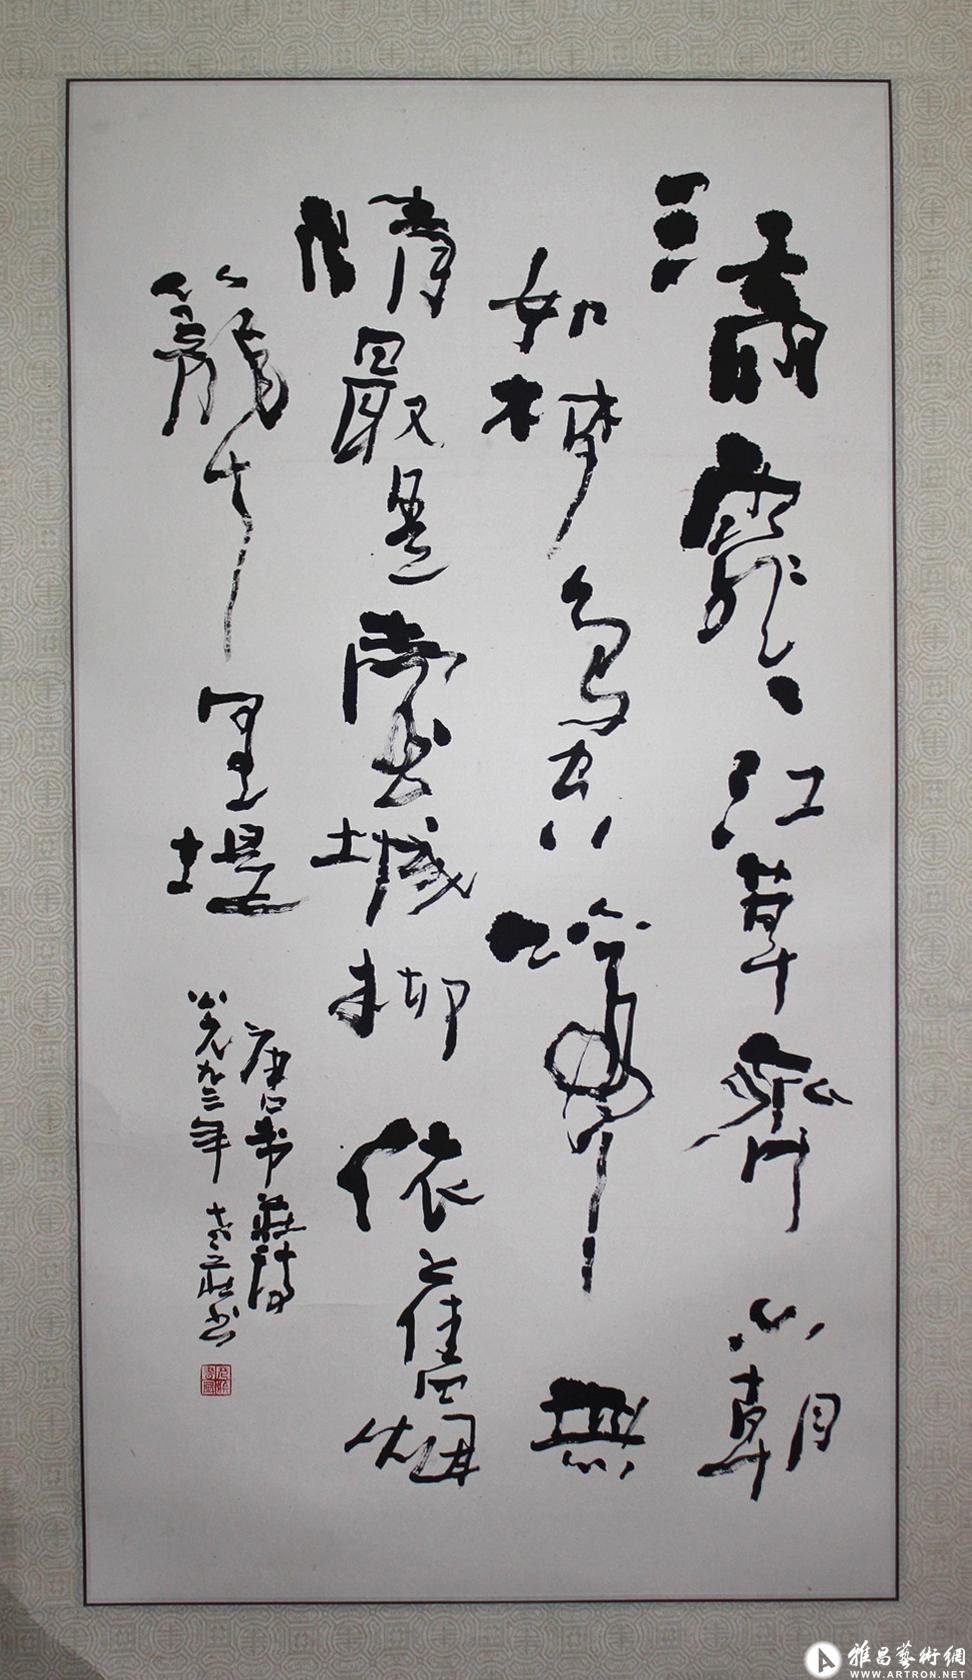 江雨霏〻江草齊六朝
如梦鳥空啼無
情最是臺城柳依舊烟
籠十里堤
唐韋莊詩
公元九三年 書
雅昌藝術網
WWW.ARTRON.NET